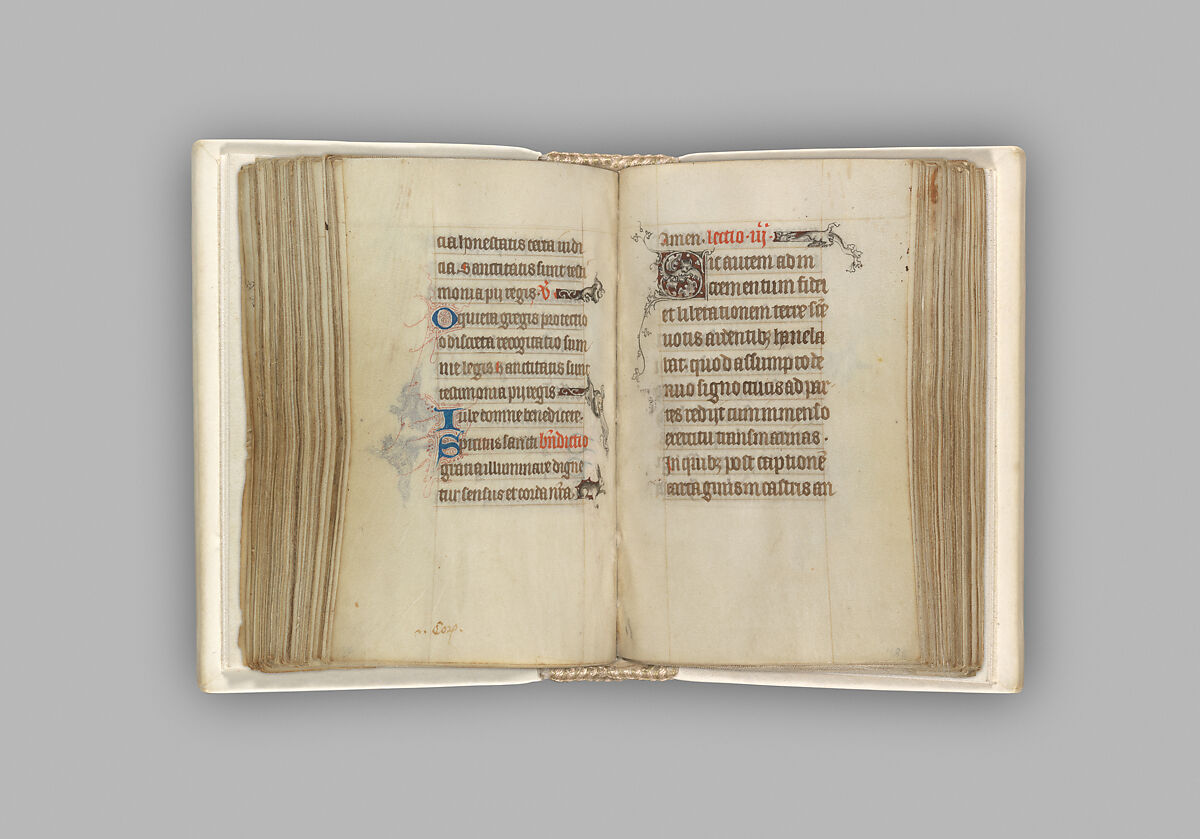 cia honestatis certa iudi
cia. Sanctitatis sunt testi
monia pij regis. V
O quieta gregis protectio
o discreta recognitatio sum
me legis. Sanctitatis sunt
testimonia pij regis
Iube domne benedicere.
Spiritus sancti bndictio
gratia illuminare digne
tur sensus et corda nra.
.. Corp.
Amen. lectio iij
Sic autem ad in
crementum fidei
et liberationem terre sce
uotis ardentibz hanela
bat. quod assumpto de
nuo signo crucis ad par
tes redijt cum inmenso
exercitu transmarinas.
In quibz post captione
cartaginis in castris an